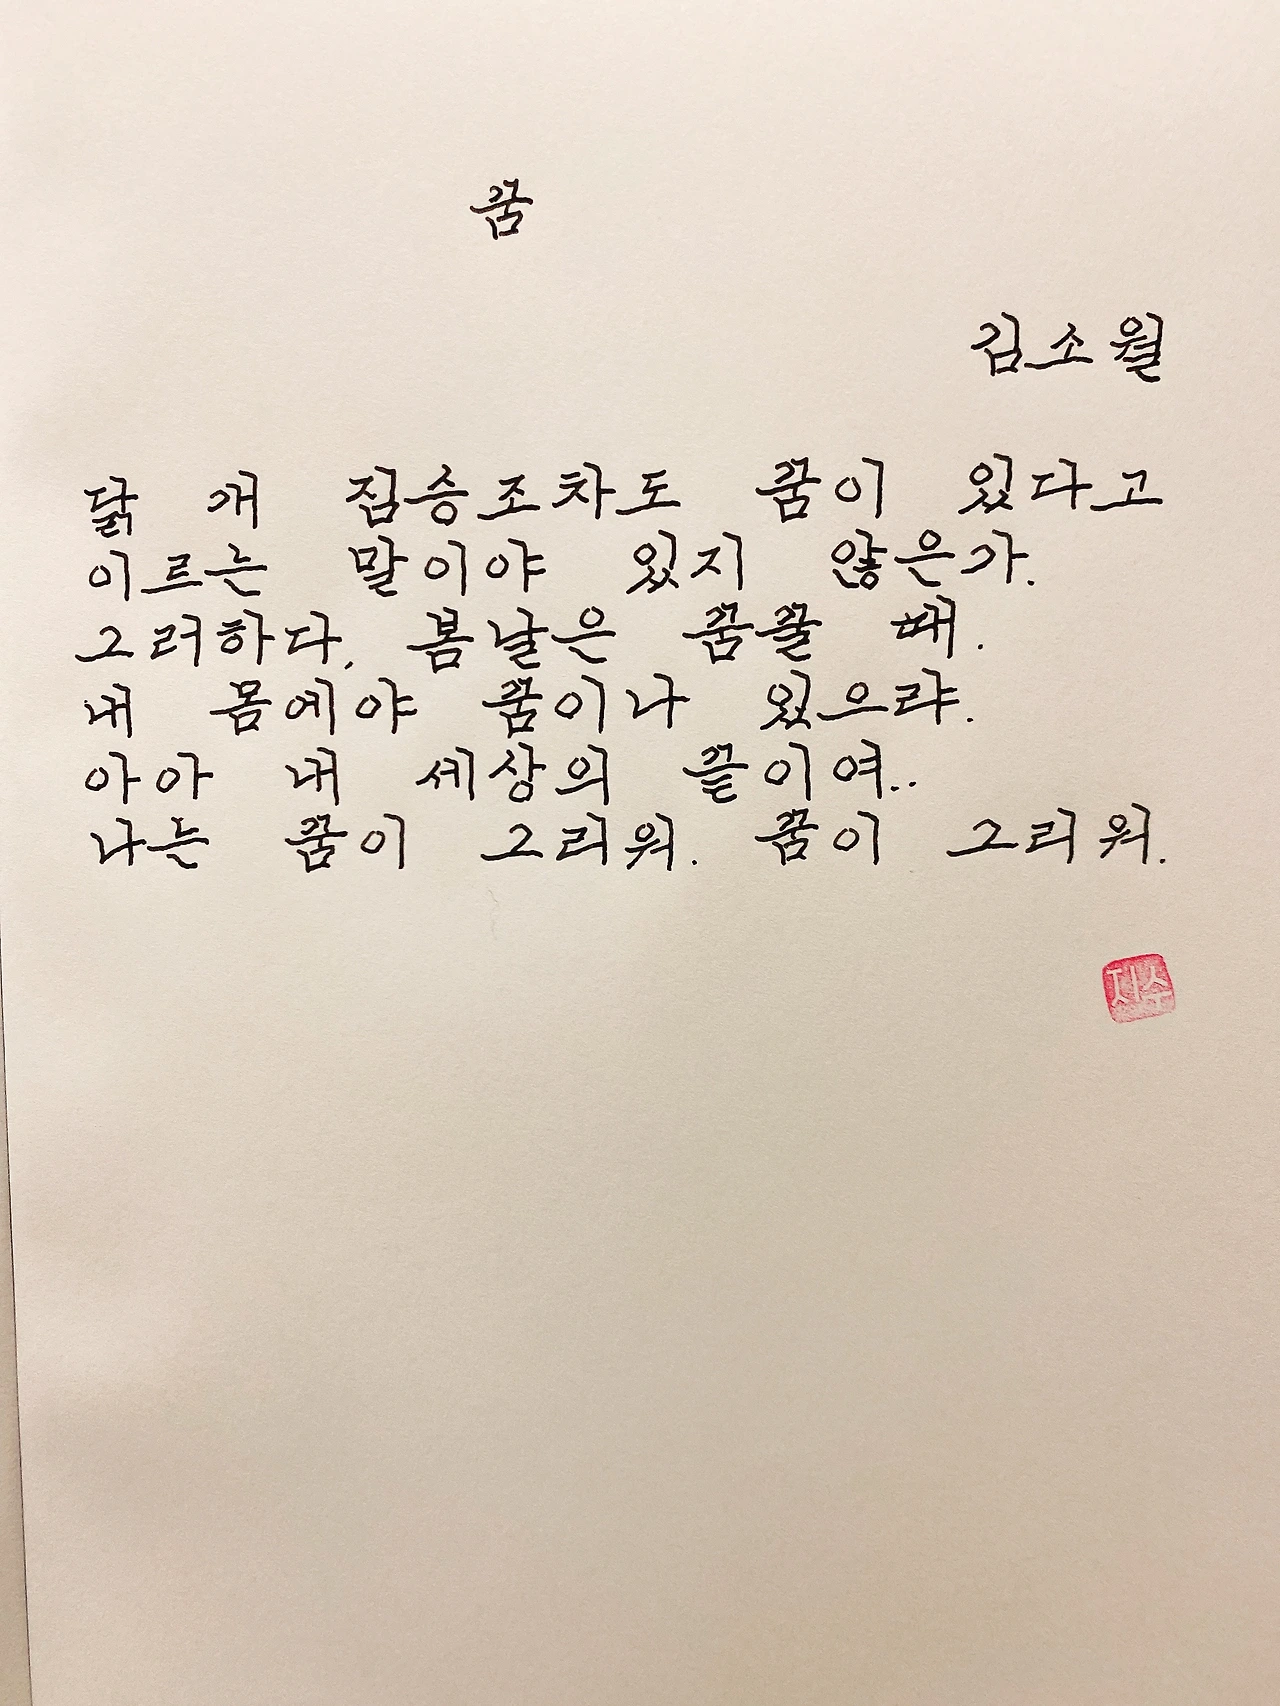 꿈
김소월
닭 개 짐승조차도 꿈이 있다고
이르는 말이야 있지 않은가.
그러하다, 봄날은 꿈꿀 때.
내 몸에야 꿈이나 있으랴.
아아 내 세상의 끝이여..
나는 꿈이 그리워. 꿈이 그리워.
지수